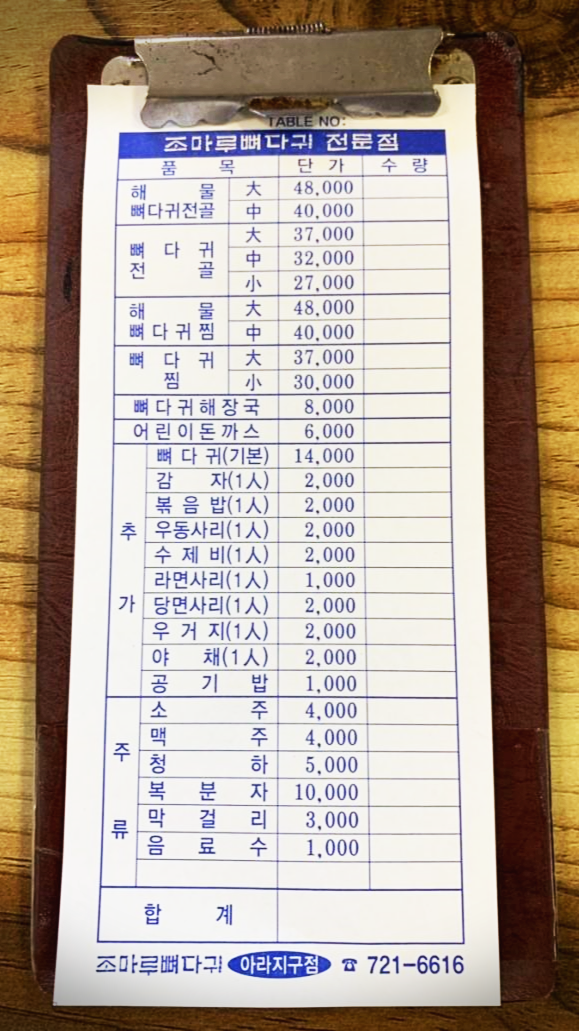 TABLE NO:
조마루뼈다귀 전문점
품 목 단 가 수 량
해 물 뼈다귀전골 大 48,000
中 40,000
뼈 다 귀 전 골 大 37,000
中 32,000
小 27,000
해 물 뼈다귀찜 大 48,000
中 40,000
뼈 다 귀 찜 大 37,000
小 30,000
뼈다귀해장국 8,000
어린이돈까스 6,000
추 가
뼈 다 귀(기본) 14,000
감 자(1人) 2,000
볶 음 밥(1人) 2,000
우동사리(1人) 2,000
수 제 비(1人) 2,000
라면사리(1人) 1,000
당면사리(1人) 2,000
우 거 지(1人) 2,000
야 채(1人) 2,000
공 기 밥 1,000
주 류
소 주 4,000
맥 주 4,000
청 하 5,000
복 분 자 10,000
막 걸 리 3,000
음 료 수 1,000
합 계
조마루뼈다귀 아라지구점 ☎ 721-6616